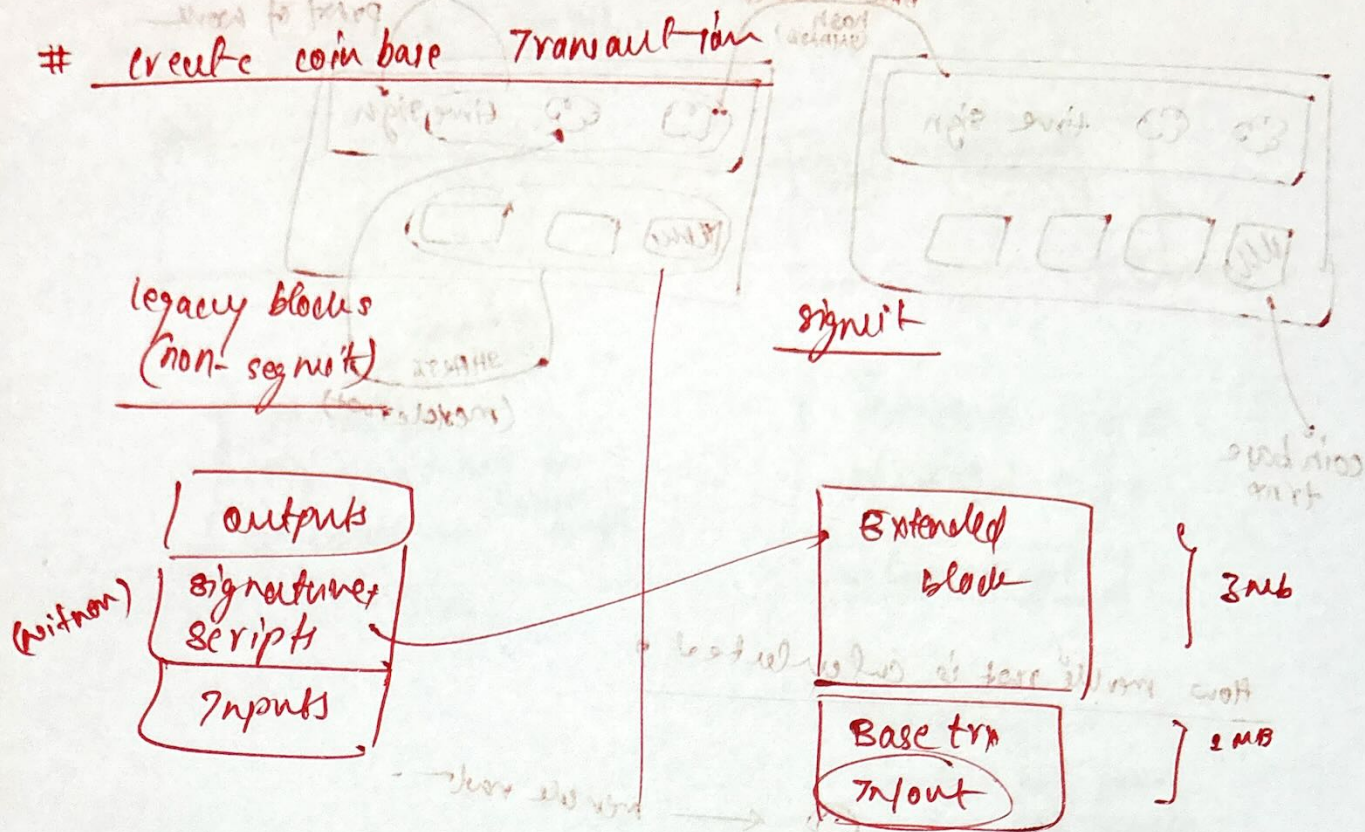 # create coin base Transaction
legacy blocks
(non-segwit)
signwit
outputs
signatures
scripts
(witness)
Inputs
Extended
block
3mb
Base trx
In/out
1 MB